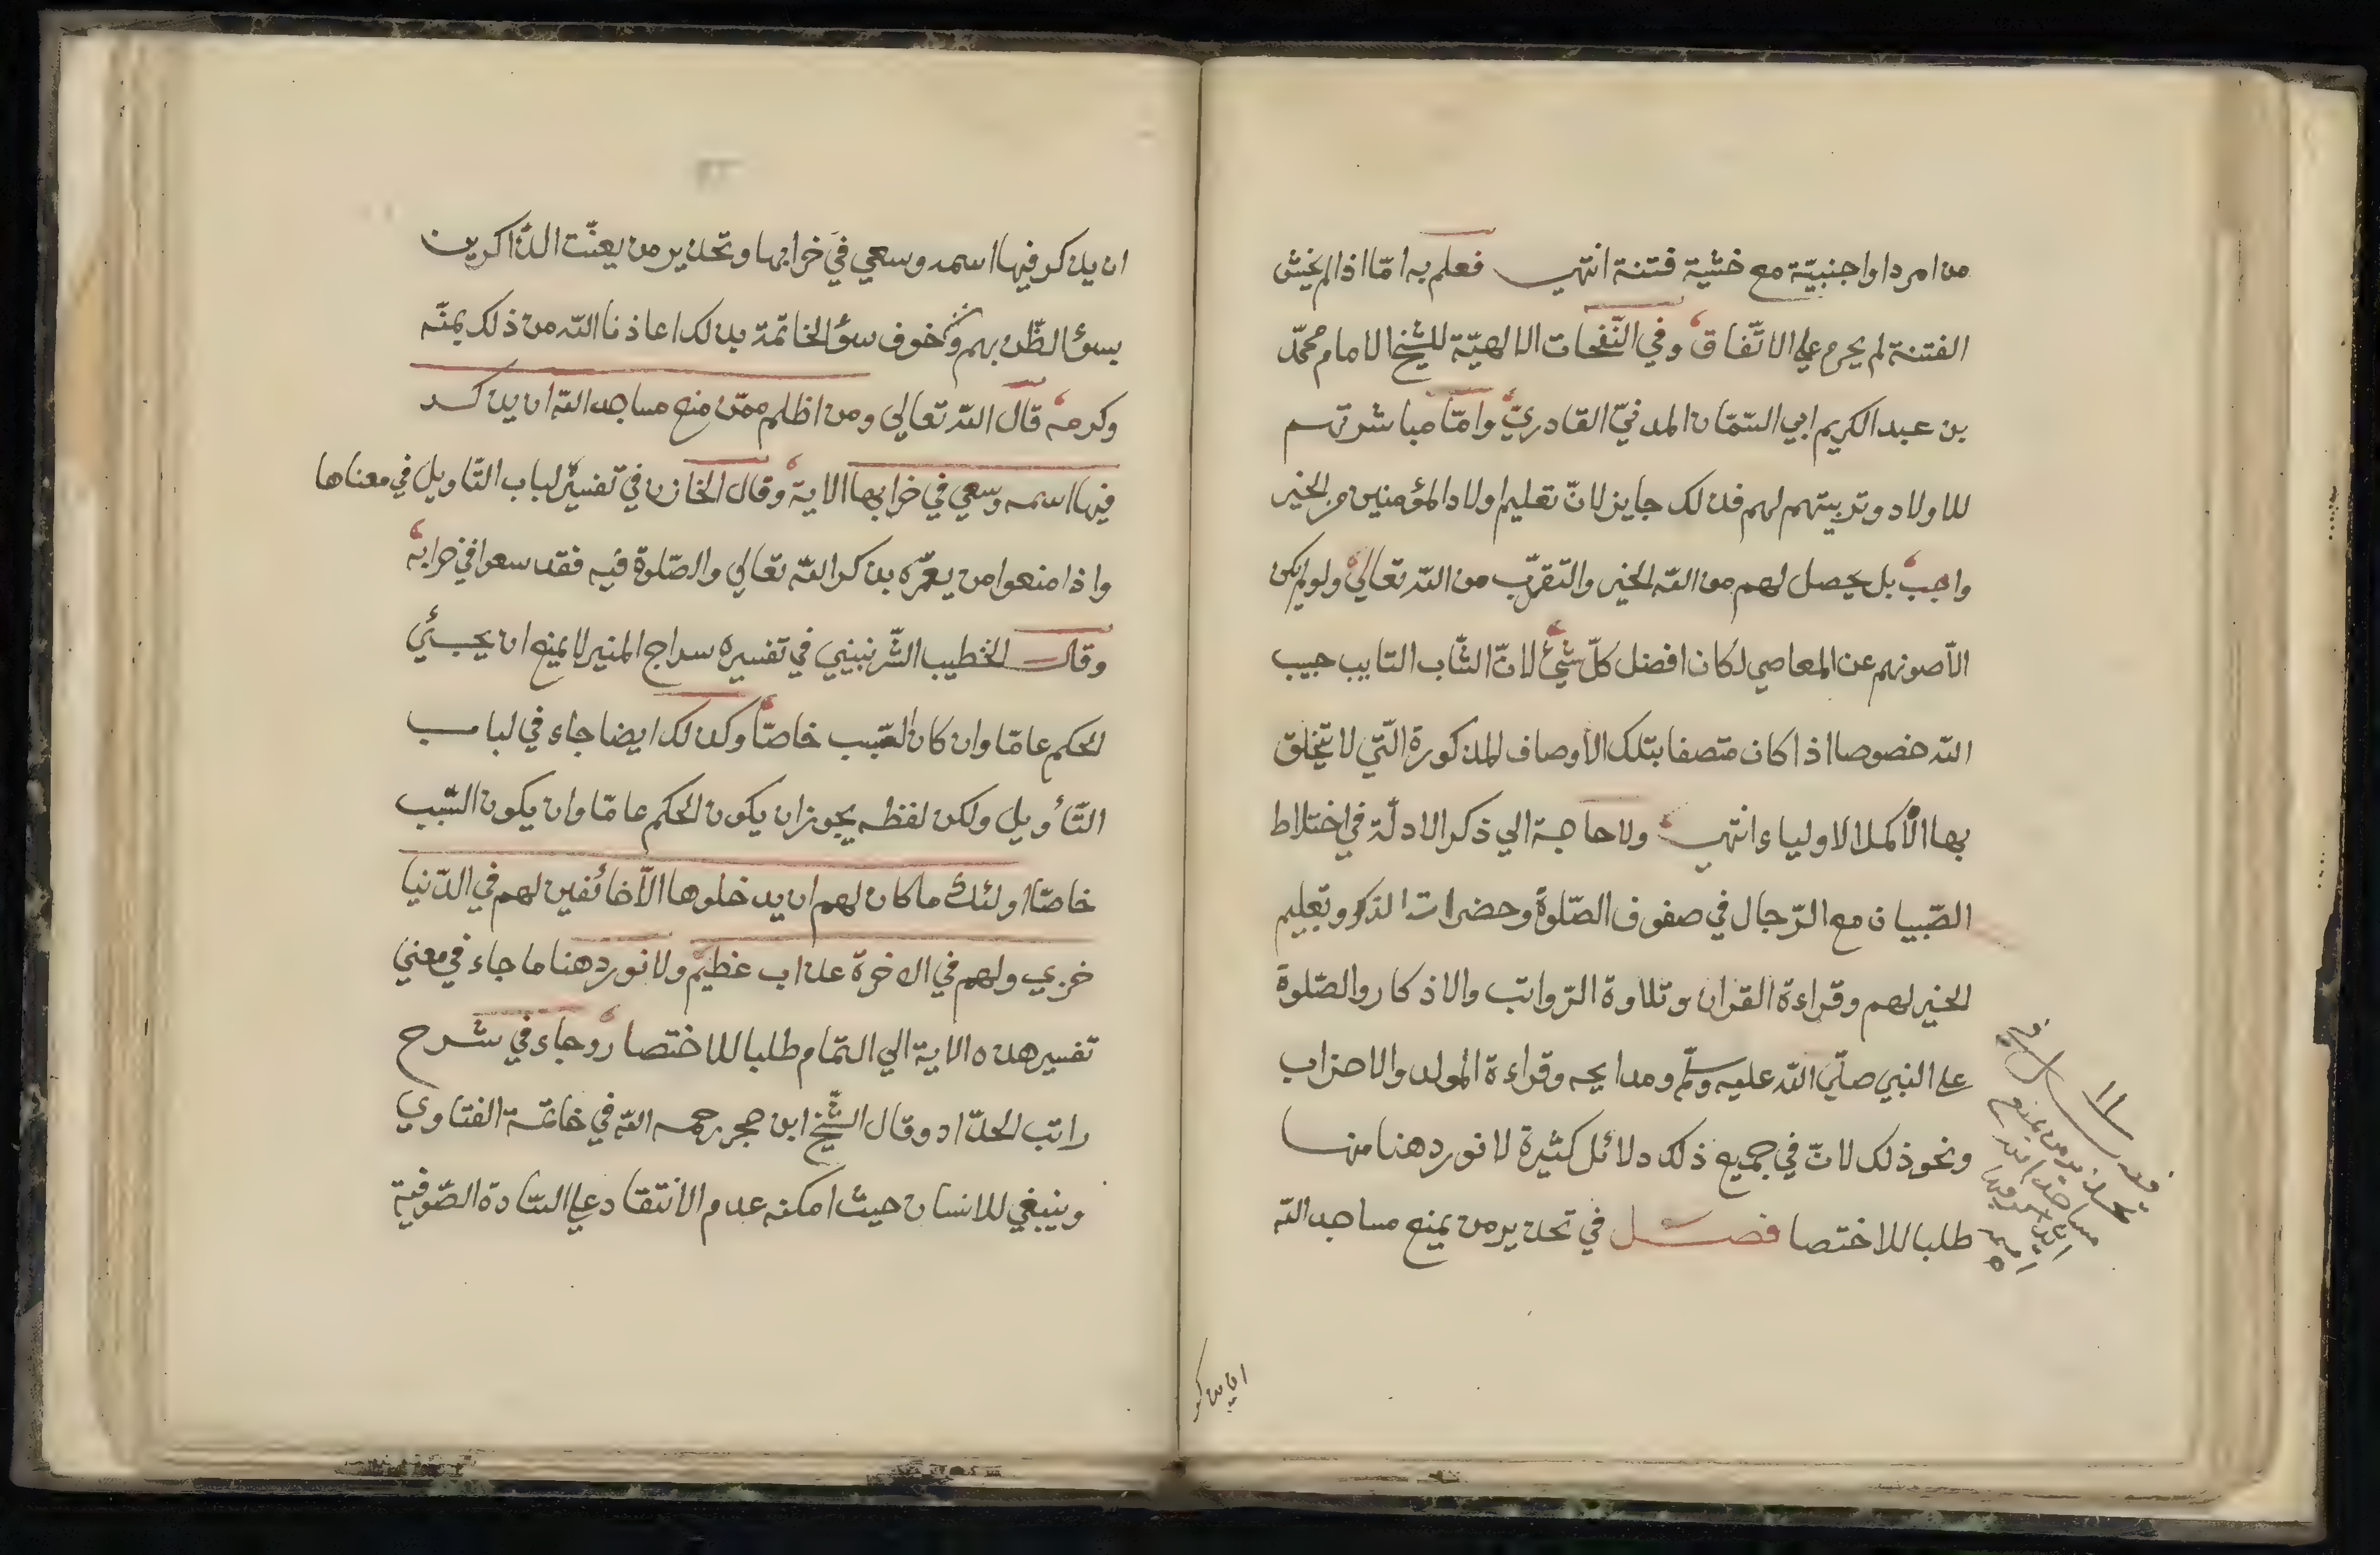 من امرد او اجنبيّة مع خشية فتنة انتهى فعلم به امّا اذا لم يخش
الفتنة لم يحرم علي الاتّفاق وفي النّفحات الالهيّة للشّيخ الامام محمّد
بن عبد الكريم ابي السّمّان المدنيّ القادريّ وامّا مباشرتهم
للاولاد وتربيتهم لهم فذلك جايز لانّ تعليم اولاد المؤمنين من الخير
واجب بل يحصل لهم من الله الخير والتقرّب من الله تعالي ولو لم يكن
الّا صونهم عن المعاصي لكان افضل كلّ شئ لانّ الشّاب التايب حبيب
الله خصوصا اذا كان متصفا بتلك الأوصاف المذكورة الّتي لا يتخلق
بها الّا كمل الاولياء انتهى ولا حاجة الي ذكر الادلّة في اختلاط
الصّبيان مع الرّجال في صفوف الصّلوة وحضرات الذكر وتعليم
الخير لهم وقراءة القران وتلاوة الرّواتب والاذكار والصّلوة
علي النبي صلّي الله عليه وسلّم ومدايحه وقراءة المولد والاحزاب
ونحو ذلك لانّ في جميع ذلك دلائل كثيرة لا نورد هنا منها
طلبا للاختصا فصل في تحذير من يمنع مساجد الله
١١
فصل في
تحذير من يمنع
مساجد الله
ان يذكر فيها
اسمه
ان يذكر
ان يذكر فيها اسمه وسعي في خرابها وتحذير من يعنّت الذّاكرين
بسوٴ الظّن بهم وخوف سوٴ الخاتمة بذلك اعاذنا الله من ذلك بمنّه
وكرمه قال الله تعالي ومن اظلم ممّن منع مساجد الله ان يذكر
فيها اسمه وسعي في خرابها الاية وقال الخازن في تفسير لباب التّاويل في معناها
واذا منعوا من يعمّره بذكر الله تعالي والصّلوة فيه فقد سعوا في خرابه
وقال الخطيب الشّربيني في تفسيره سراج المنير لا يمنع ان يجئي
الحكم عامّا وان كان السّبب خاصّا وكذلك ايضا جاء في لباب
التّأويل ولكن لفظه يجوز ان يكون الحكم عامّا وان يكون السّبب
خاصّا اولئك ما كان لهم ان يدخلوها الّا خائفين لهم في الدّنيا
خزي ولهم في الاخرة عذاب عظيم ولا نورد هنا ما جاء في معني
تفسير هذه الاية الي التمّام طلبا للاختصار وجاء في شرح
راتب الحدّاد وقال الشّيخ ابن حجر رحمه الله في خاتمة الفتاوي
وينبغي للانسان حيث امكنه عدم الأنتقاد علي السّادة الصّوفية